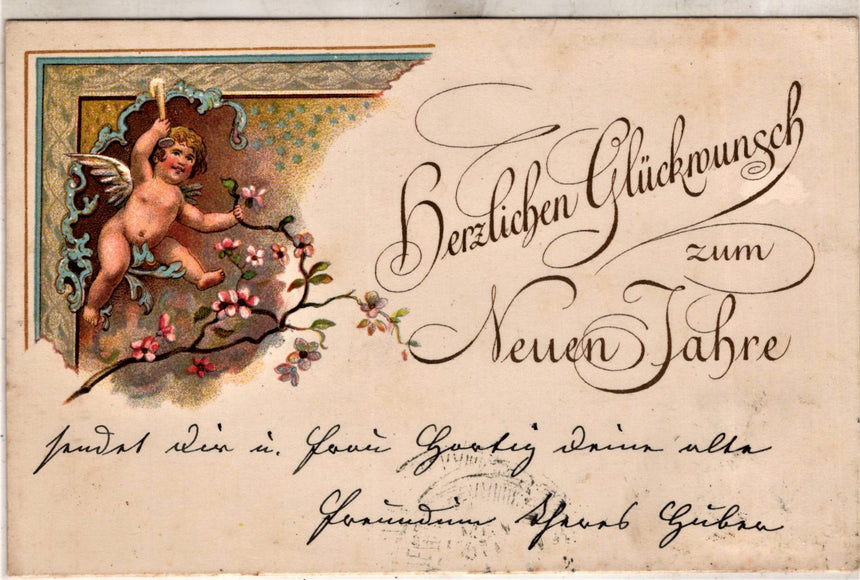 Herzlichen Glückwunsch
zum
Neuen Jahre
sendet Dir u. Frau Hartig deine alte
Freundin Theres Huber